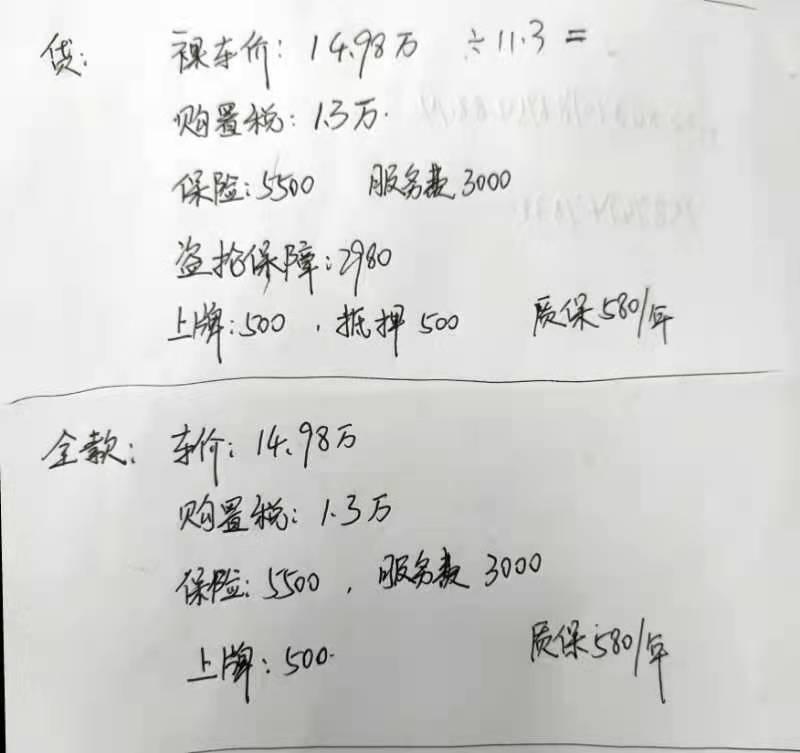 贷： 裸车价：14.98万 ÷11.3 =
购置税：1.3万.
保险：5500 服务费 3000
盗抢保障：2980
上牌：500 ，抵押 500 质保 580/年
全款： 车价：14.98万
购置税：1.3万
保险：5500 ，服务费 3000
上牌：500. 质保 580/年